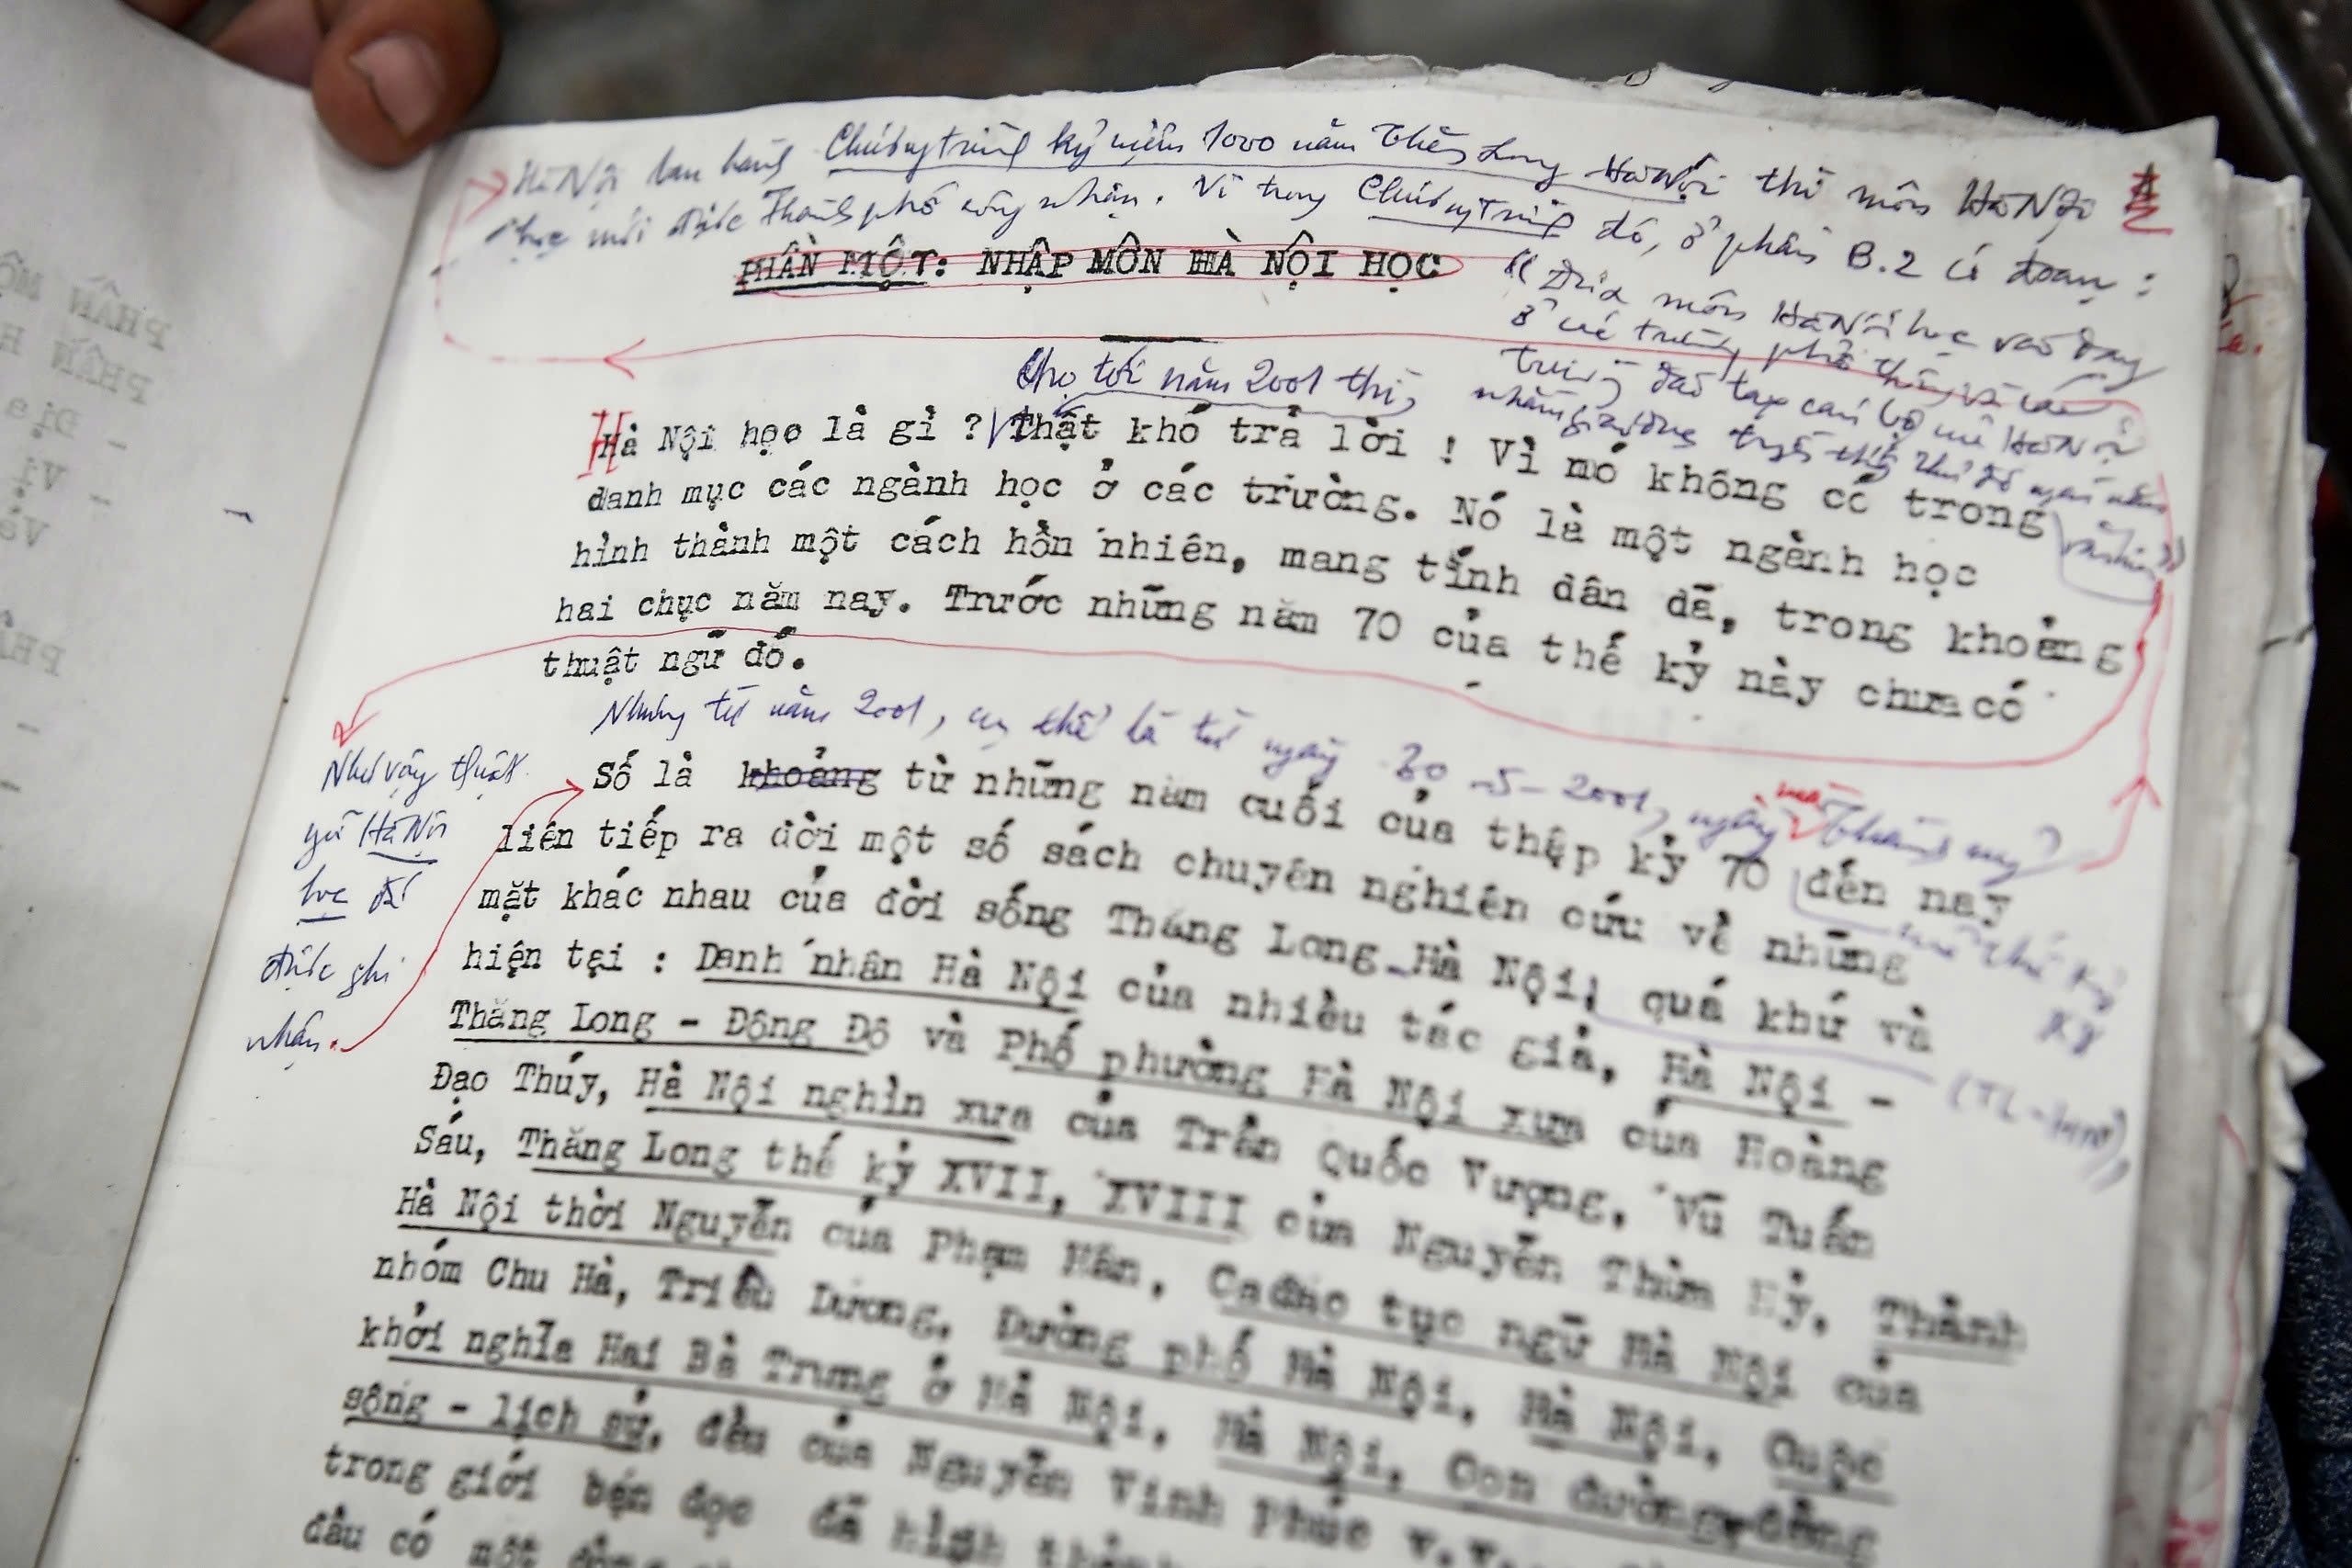 Hà Nội ban hành Chương trình kỷ niệm 1000 năm Thăng Long Hà Nội thì môn Hà Nội
học mới được Thành phố công nhận. Vì trong Chương trình đó, ở phần B.2 có đoạn :
PHẦN MỘT: NHẬP MÔN HÀ NỘI HỌC
"Đưa môn Hà Nội học vào dạy
ở các trường phổ thông và các
trường đào tạo cán bộ của Hà Nội
nhằm giáo dục truyền thống Thủ đô ngàn năm
văn hiến"
Cho tới năm 2001 thì,
Hà Nội học là gì ? Thật khó trả lời ! Vì nó không có trong
danh mục các ngành học ở các trường. Nó là một ngành học
hình thành một cách hồn nhiên, mang tính dân dã, trong khoảng
hai chục năm nay. Trước những năm 70 của thế kỷ này chưa có
thuật ngữ đó.
Nhưng từ năm 2001, cụ thể là từ ngày 30-5-2001, ngày mà Thành uỷ
Như vậy thuật
ngữ Hà Nội
học đã
được ghi
nhận.
Số là khoảng từ những năm cuối của thập kỷ 70 đến nay
liên tiếp ra đời một số sách chuyên nghiên cứu về những
mặt khác nhau của đời sống Thăng Long-Hà Nội, quá khứ và
hiện tại : Danh nhân Hà Nội của nhiều tác giả, Hà Nội -
Thăng Long - Đông Đô và Phố phường Hà Nội xưa của Hoàng
Đạo Thúy, Hà Nội nghìn xưa của Trần Quốc Vượng, Vũ Tuấn
Sán, Thăng Long thế kỷ XVII, XVIII của Nguyễn Thừa Hỷ, Thành
Hà Nội thời Nguyễn của Phạm Hân, Ca dao tục ngữ Hà Nội của
nhóm Chu Hà, Triều Dương, Đường phố Hà Nội, Hà Nội, Cuộc
khởi nghĩa Hai Bà Trưng ở Hà Nội, Hà Nội, Con đường, dòng
sông - lịch sử, đều của Nguyễn Vinh Phúc v.v.
trong giới bạn đọc đã hình
đầu có một